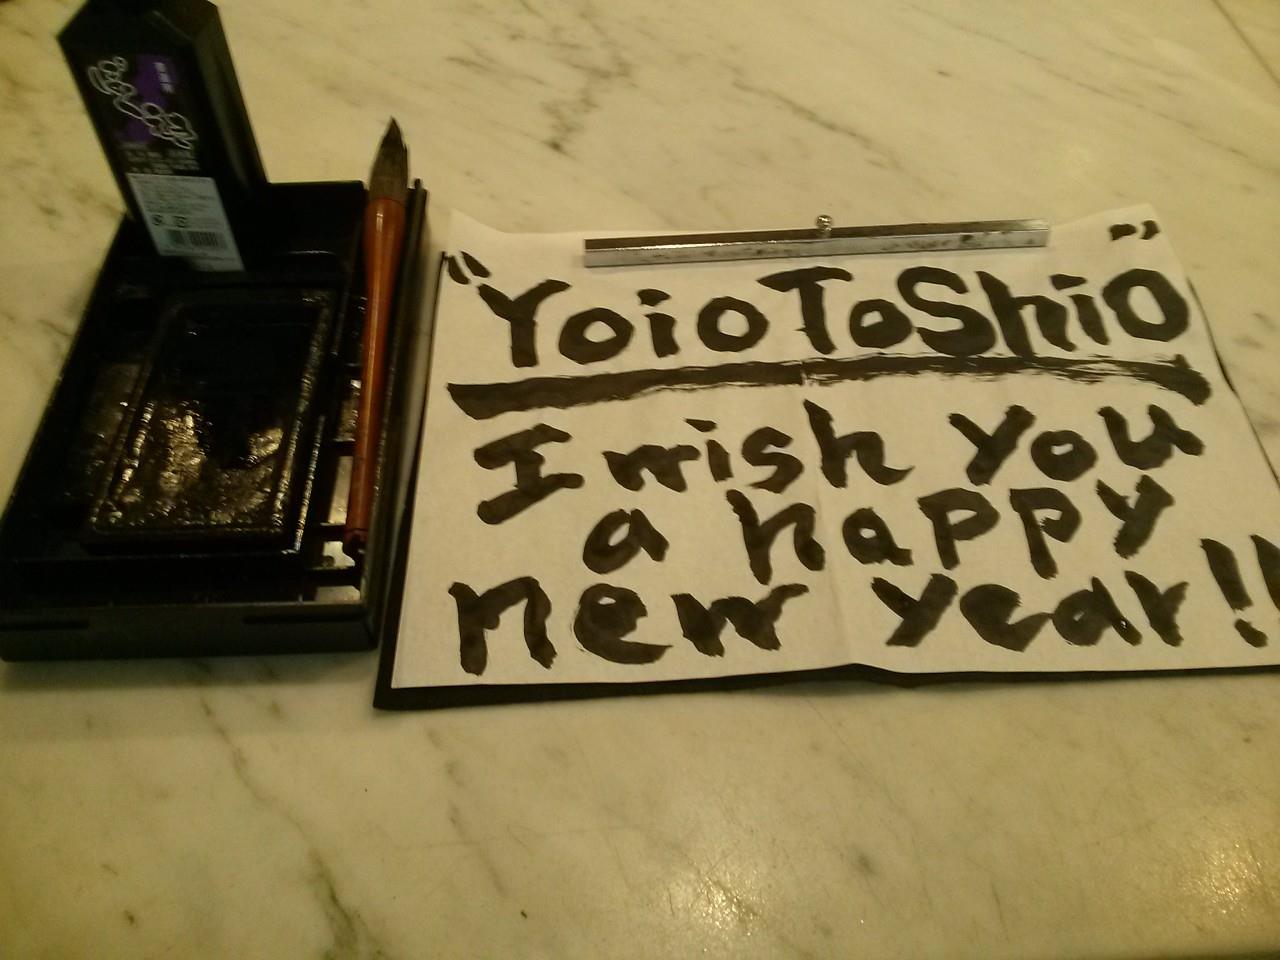 "YoioToShiO"
I wish you
a happy
new year!!